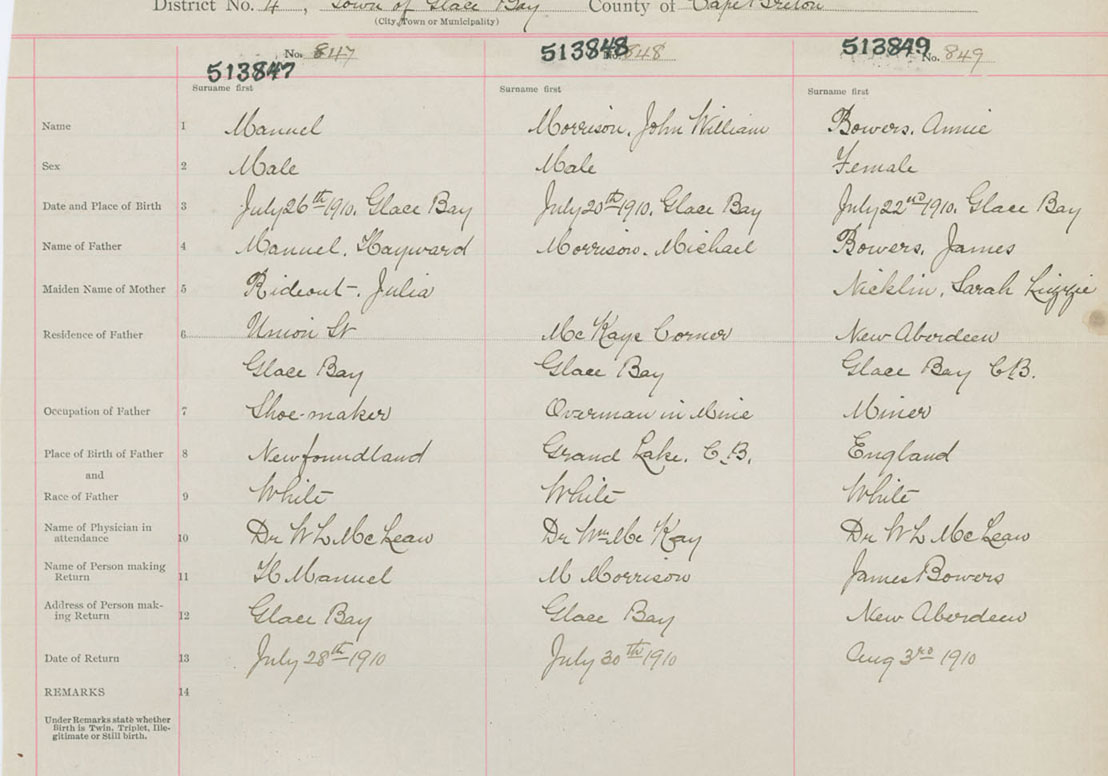 District No. 4, Town of Glace Bay County of Cape Breton
(City, Town or Municipality)
No. 847 513848 No. 848 513849 No. 849
513847
Surname first Surname first Surname first
Name 1 Manuel Morrison, John William Bowers, Annie
Sex 2 Male Male Female
Date and Place of Birth 3 July 26th 1910, Glace Bay July 20th 1910, Glace Bay July 22nd 1910, Glace Bay
Name of Father 4 Manuel, Hayward Morrison, Michael Bowers, James
Maiden Name of Mother 5 Rideout, Julia Nicklin, Sarah Lizzie
Residence of Father 6 Union St McKays Corner New Aberdeen
Glace Bay Glace Bay Glace Bay C.B.
Occupation of Father 7 Shoe-maker Overman in Mine Miner
Place of Birth of Father 8 Newfoundland Grand Lake, C.B. England
and
Race of Father 9 White White White
Name of Physician in attendance 10 Dr W L McLean Dr Wm McKay Dr W L McLean
Name of Person making Return 11 H Manuel M Morrison James Bowers
Address of Person making Return 12 Glace Bay Glace Bay New Aberdeen
Date of Return 13 July 28th 1910 July 30th 1910 Aug 3rd 1910
REMARKS 14
Under Remarks state whether
Birth is Twin, Triplet, Ille-
gitimate or Still birth.